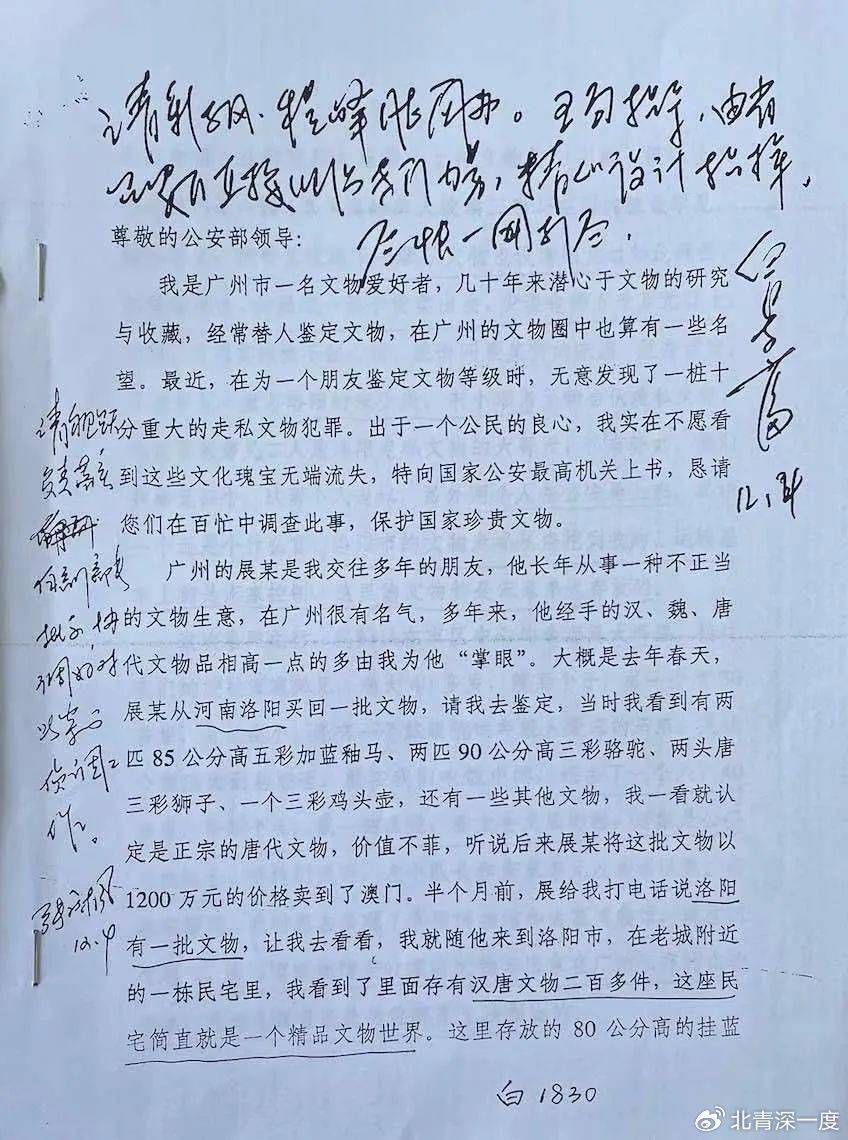 尊敬的公安部领导：
我是广州市一名文物爱好者，几十年来潜心于文物的研究
与收藏，经常替人鉴定文物，在广州的文物圈中也算有一些名
望。最近，在为一个朋友鉴定文物等级时，无意发现了一桩十
分重大的走私文物犯罪。出于一个公民的良心，我实在不愿看
到这些文化瑰宝无端流失，特向国家公安最高机关上书，恳请
您们在百忙中调查此事，保护国家珍贵文物。
广州的展某是我交往多年的朋友，他长年从事一种不正当
的文物生意，在广州很有名气，多年来，他经手的汉、魏、唐
代文物品相高一点的多由我为他“掌眼”。大概是去年春天，
展某从河南洛阳买回一批文物，请我去鉴定，当时我看到有两
匹 85 公分高五彩加蓝釉马、两匹 90 公分高三彩骆驼、两头唐
三彩狮子、一个三彩鸡头壶，还有一些其他文物，我一看就认
定是正宗的唐代文物，价值不菲，听说后来展某将这批文物以
1200 万元的价格卖到了澳门。半个月前，展给我打电话说洛阳
有一批文物，让我去看看，我就随他来到洛阳市，在老城附近
的一栋民宅里，我看到了里面存有汉唐文物二百多件，这座民
宅简直就是一个精品文物世界。这里存放的 80 公分高的挂蓝
12.4
12.9
白 1830
北青深一度